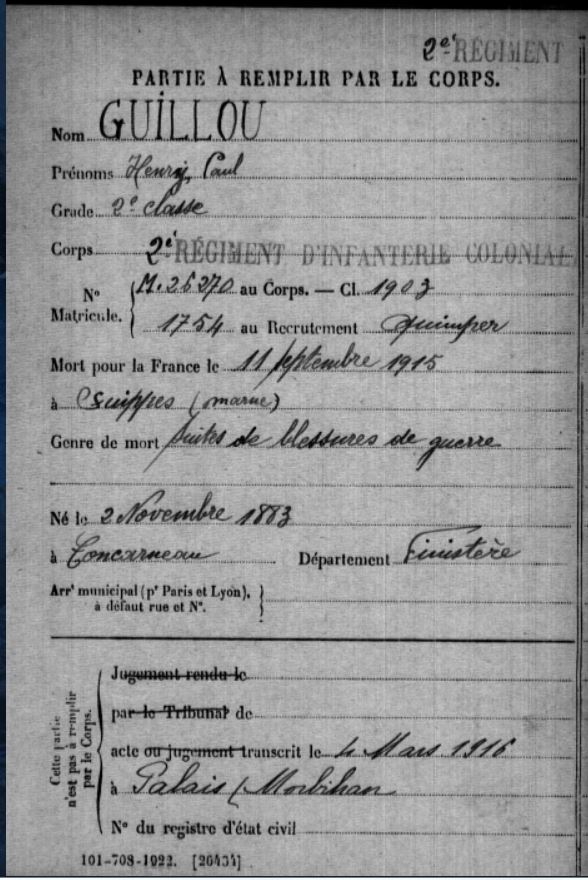 2e RÉGIMENT
PARTIE À REMPLIR PAR LE CORPS.
Nom GUILLOU
Prénoms Henry, Paul
Grade 2e classe
Corps 2e RÉGIMENT D'INFANTERIE COLONIAL
No Matricule. { M. 26270 au Corps. — Cl. 1903
1754 au Recrutement Quimper
Mort pour la France le 11 septembre 1915
à Suippes (marne)
Genre de mort suites de blessures de guerre
Né le 2 Novembre 1883
à Concarneau Département Finistère
Arrt municipal (pr Paris et Lyon),
à défaut rue et No.
Cette partie
n'est pas à remplir
par le Corps.
Jugement rendu le
par le Tribunal de
acte ou jugement transcrit le 4 Mars 1916
à Palais (Morbihan
No du registre d'état civil
101-708-1922. [26434]